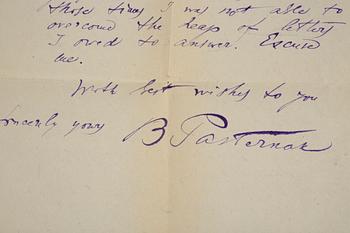 those times I was not able to
overcome the heap of letters
I owed to answer. Excuse
me.
With best wishes to you
sincerely yours B Pasternak